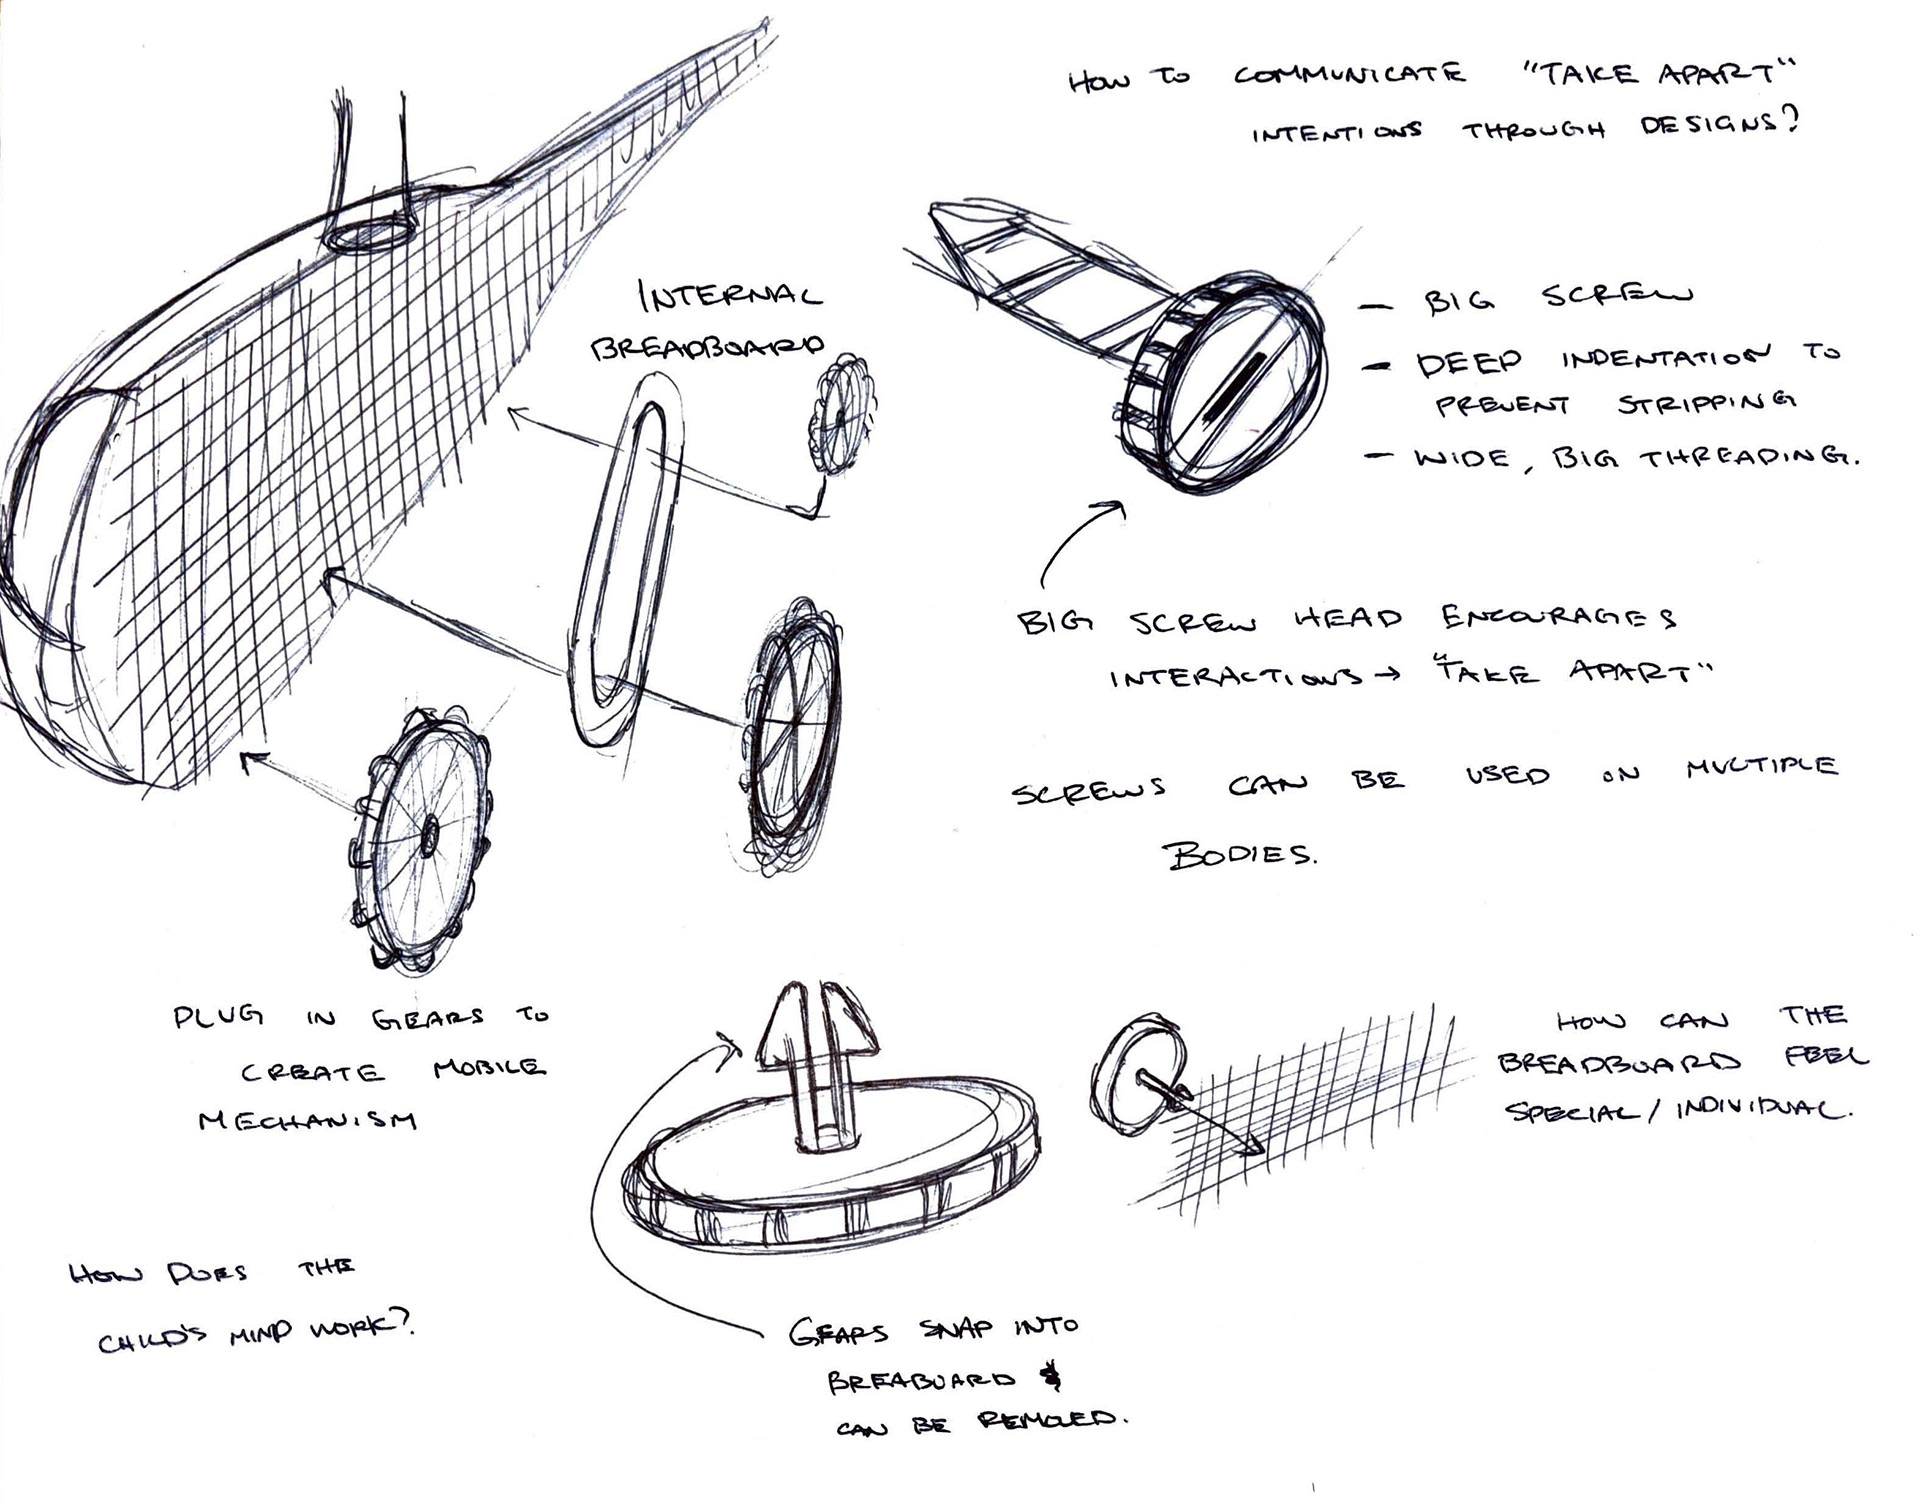 HOW TO COMMUNICATE "TAKE APART"
INTENTIONS THROUGH DESIGNS?
INTERNAL
BREADBOARD
- BIG SCREW
- DEEP INDENTATION TO
PREVENT STRIPPING
- WIDE, BIG THREADING.
BIG SCREW HEAD ENCOURAGES
INTERACTIONS → "TAKE APART"
SCREWS CAN BE USED ON MULTIPLE
BODIES.
PLUG IN GEARS TO
CREATE MOBILE
MECHANISM
HOW CAN THE
BREADBOARD FEEL
SPECIAL / INDIVIDUAL.
HOW DOES THE
CHILD'S MIND WORK?
GEARS SNAP INTO
BREABOARD &
CAN BE REMOVED.